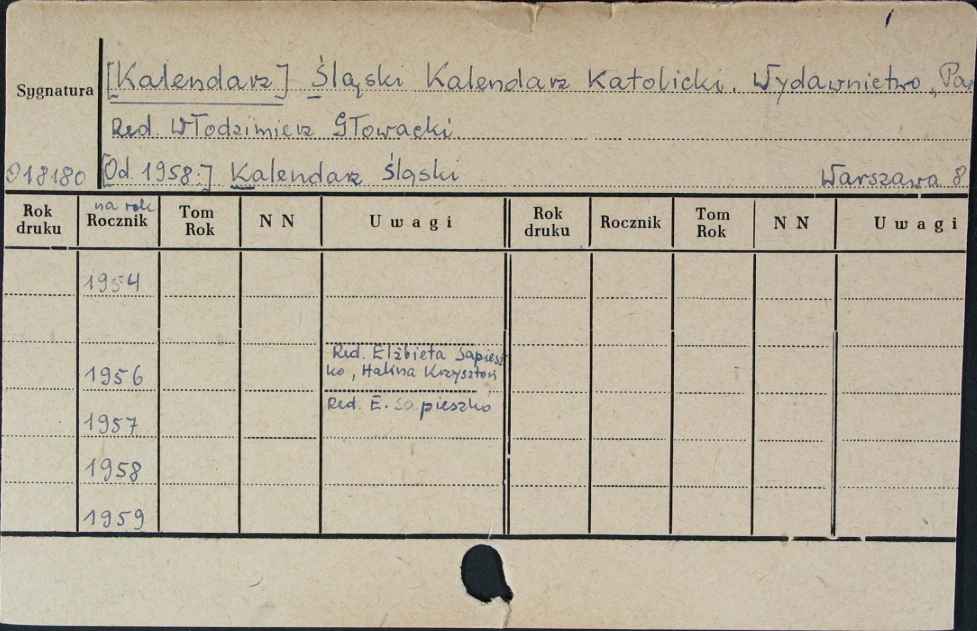 Sygnatura [Kalendarz] Śląski Kalendarz Katolicki. Wydawnictwo „Pa
Red Włodzimierz Głowacki
918180 [Od 1958:] Kalendarz Śląski Warszawa 8
Rok druku na rok Rocznik Tom Rok N N Uwagi Rok druku Rocznik Tom Rok N N Uwagi
1954
Red. Elżbieta Sapiesz
1956 ko, Halina Krzysztoń
Red. E. Sapieszko
1957
1958
1959